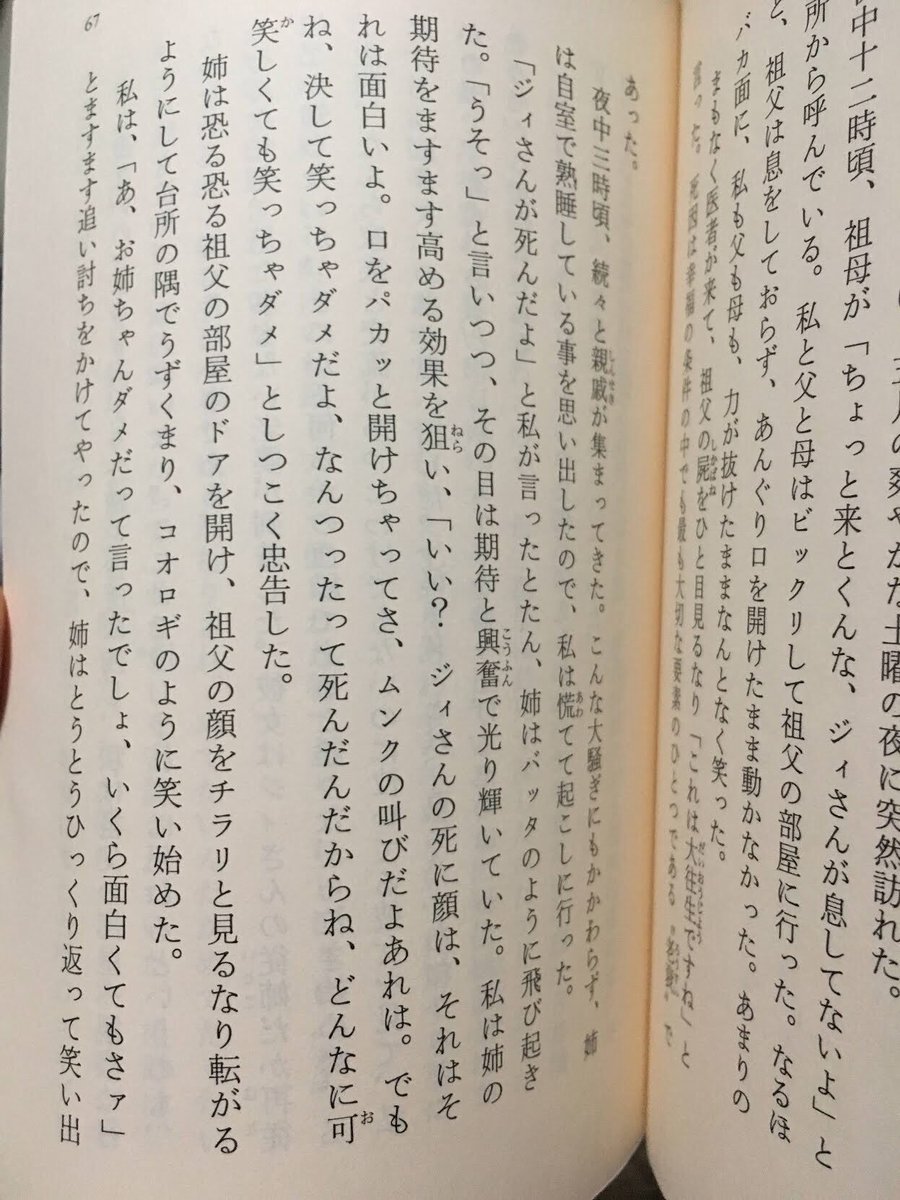 五月の爽やかな土曜の夜に突然訪れた。
中十二時頃、祖母が「ちょっと来とくんな、ジィさんが息してないよ」と
所から呼んでいる。私と父と母はビックリして祖父の部屋に行った。なるほ
ど、祖父は息をしておらず、あんぐり口を開けたまま動かなかった。あまりの
バカ面に、私も父も母も、力が抜けたままなんとなく笑った。
まもなく医者が来て、祖父の屍をひと目見るなり「これは大往生ですね」と
言った。死因は幸福の条件の中でも最も大切な要素のひとつである〝老衰〟で
あった。
夜中三時頃、続々と親戚が集まってきた。こんな大騒ぎにもかかわらず、姉
は自室で熟睡している事を思い出したので、私は慌てて起こしに行った。
「ジィさんが死んだよ」と私が言ったとたん、姉はバッタのように飛び起き
た。「うそっ」と言いつつ、その目は期待と興奮で光り輝いていた。私は姉の
期待をますます高める効果を狙い、「いい? ジィさんの死に顔は、それはそ
れは面白いよ。口をパカッと開けちゃってさ、ムンクの叫びだよあれは。でも
ね、決して笑っちゃダメだよ、なんつったって死んだんだからね、どんなに可
笑しくても笑っちゃダメ」としつこく忠告した。
姉は恐る恐る祖父の部屋のドアを開け、祖父の顔をチラリと見るなり転がる
ようにして台所の隅でうずくまり、コオロギのように笑い始めた。
私は、「あ、お姉ちゃんダメだって言ったでしょ、いくら面白くてもさァ」
とますます追い討ちをかけてやったので、姉はとうとうひっくり返って笑い出
67